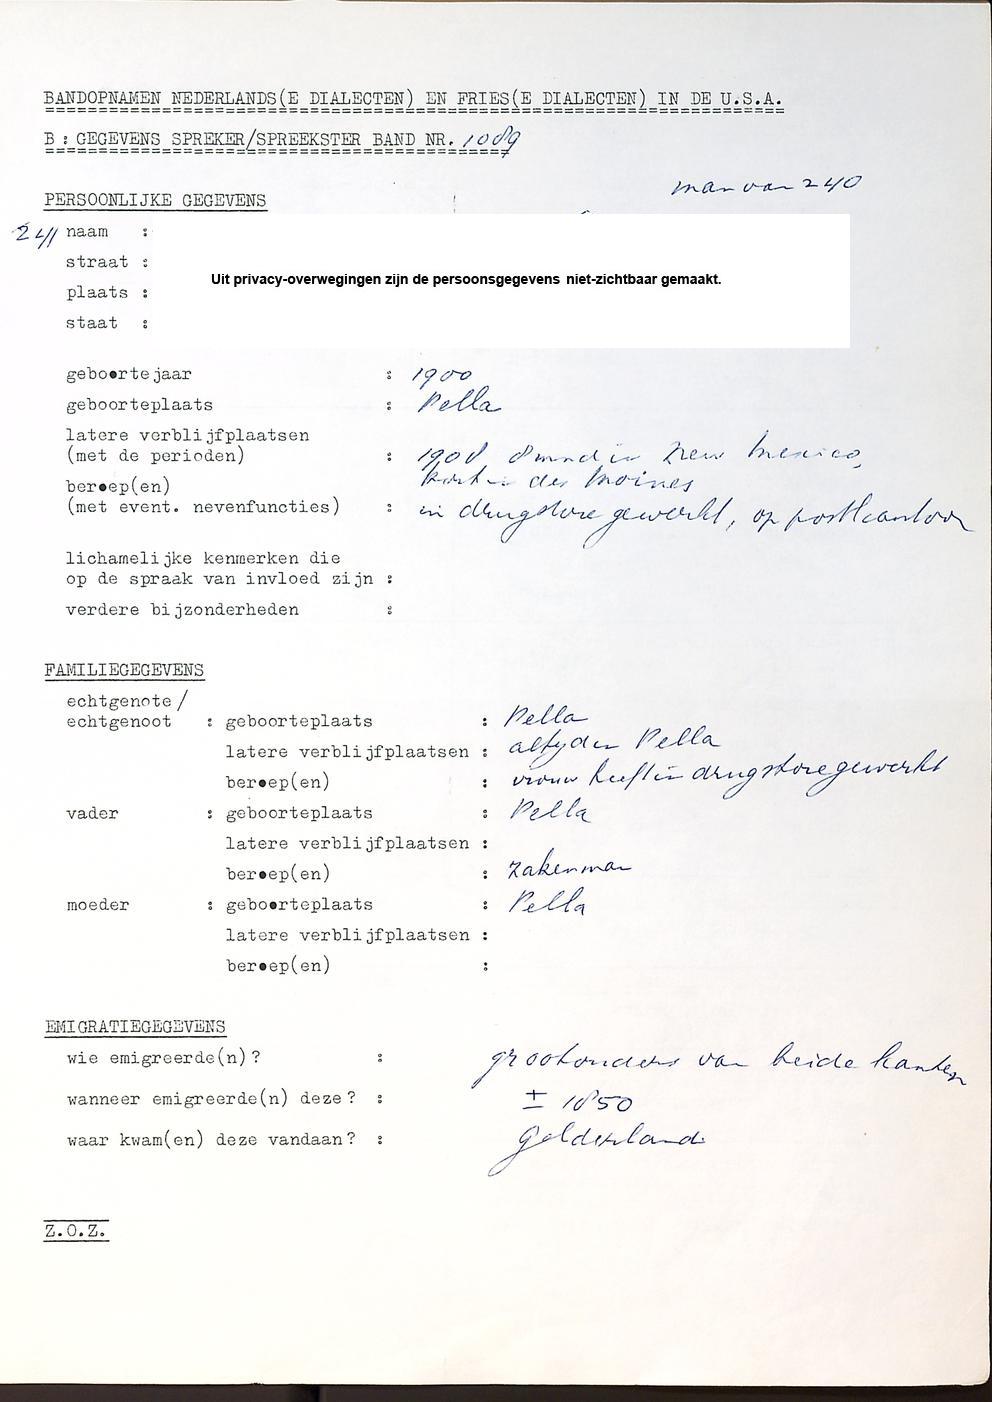 BANDOPNAMEN NEDERLANDS(E DIALECTEN) EN FRIES(E DIALECTEN) IN DE U.S.A.
B: GEGEVENS SPREKER/SPREEKSTER BAND NR. 1089
man van 240
PERSOONLIJKE GEGEVENS
241 naam :
straat :
Uit privacy-overwegingen zijn de persoonsgegevens niet-zichtbaar gemaakt.
plaats :
staat :
geboortejaar : 1900
geboorteplaats : Pella
latere verblijfplaatsen
(met de perioden) : 1908 8 mnd in New Mexico,
kort in des Moines
beroep(en)
(met event. nevenfuncties) : in drugstore gewerkt, op postkantoor
lichamelijke kenmerken die
op de spraak van invloed zijn :
verdere bijzonderheden :
FAMILIEGEGEVENS
echtgenote/
echtgenoot : geboorteplaats : Pella
latere verblijfplaatsen : altijd in Pella
beroep(en) : vrouw heeft in drugstore gewerkt
vader : geboorteplaats : Pella
latere verblijfplaatsen :
beroep(en) : zakenman
moeder : geboorteplaats : Pella
latere verblijfplaatsen :
beroep(en) :
EMIGRATIEGEGEVENS
wie emigreerde(n)? : grootouders van beide kanten
wanneer emigreerde(n) deze? : ± 1850
waar kwam(en) deze vandaan? : Gelderland
Z.O.Z.